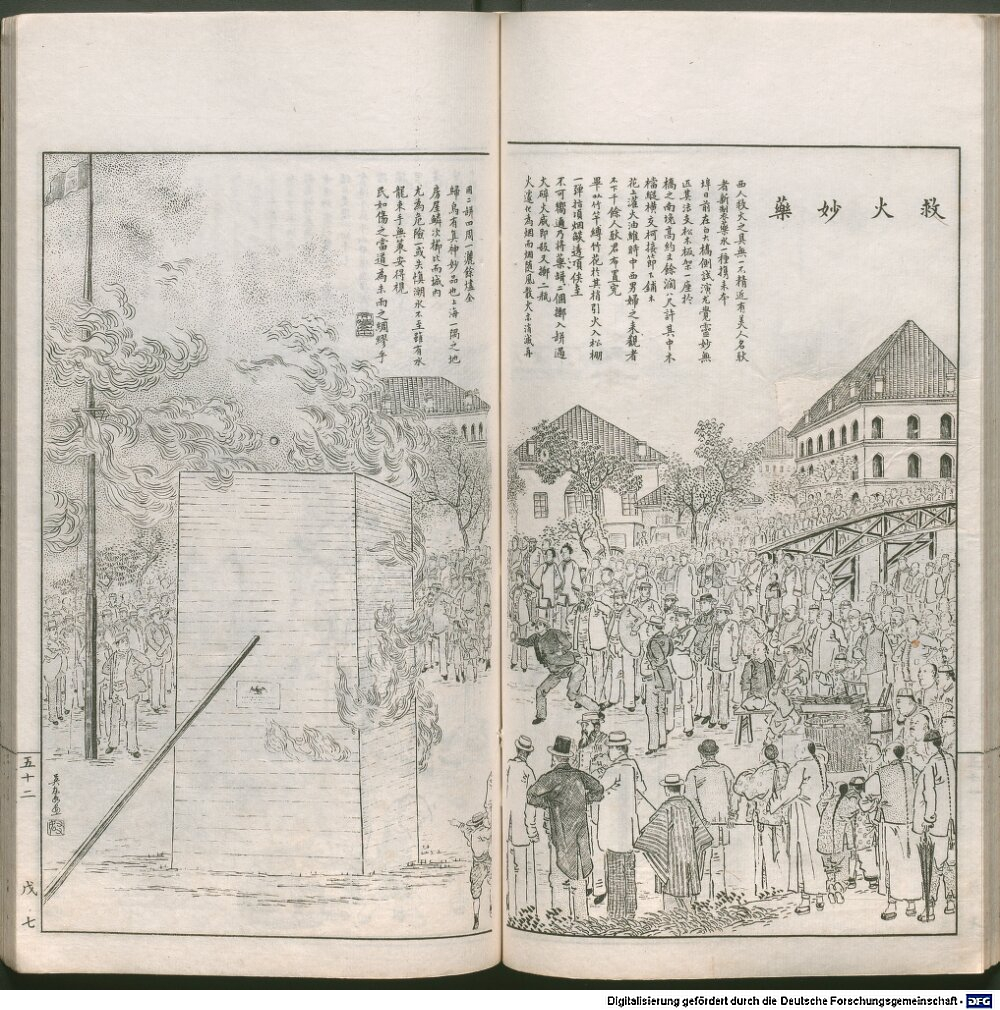 救火妙藥
西人救火之具無一不精近有美人名耿
者新製藥水一種攜來本
埠日前在白大橋側試演尤覺靈妙無
匹其法支松木板架一座於
橋之南堍高約丈餘濶八尺許其中木
檔縱橫交柯接節下鋪木
花上灌火油維時中西男婦之來觀者
不下千餘人耿君布置完
畢以竹竿縛竹花於其梢引火入松棚
一彈指頃烟燄透頂俟至
不可嚮邇乃將藥罇二個擲入罇遇
火碎火威即殺又擲二瓶
火遂化為烟而烟隨風散火亦消滅再
用二罇四周一灑餘燼全
歸烏有真神妙品也上海一隅之地
房屋鱗次櫛比而城內
尤為危險一或失慎潮水不至雖有水
龍束手無策安得視
民如傷之當道為未雨之綢繆乎
五十二
戊
七
Digitalisierung gefördert durch die Deutsche Forschungsgemeinschaft - DFG